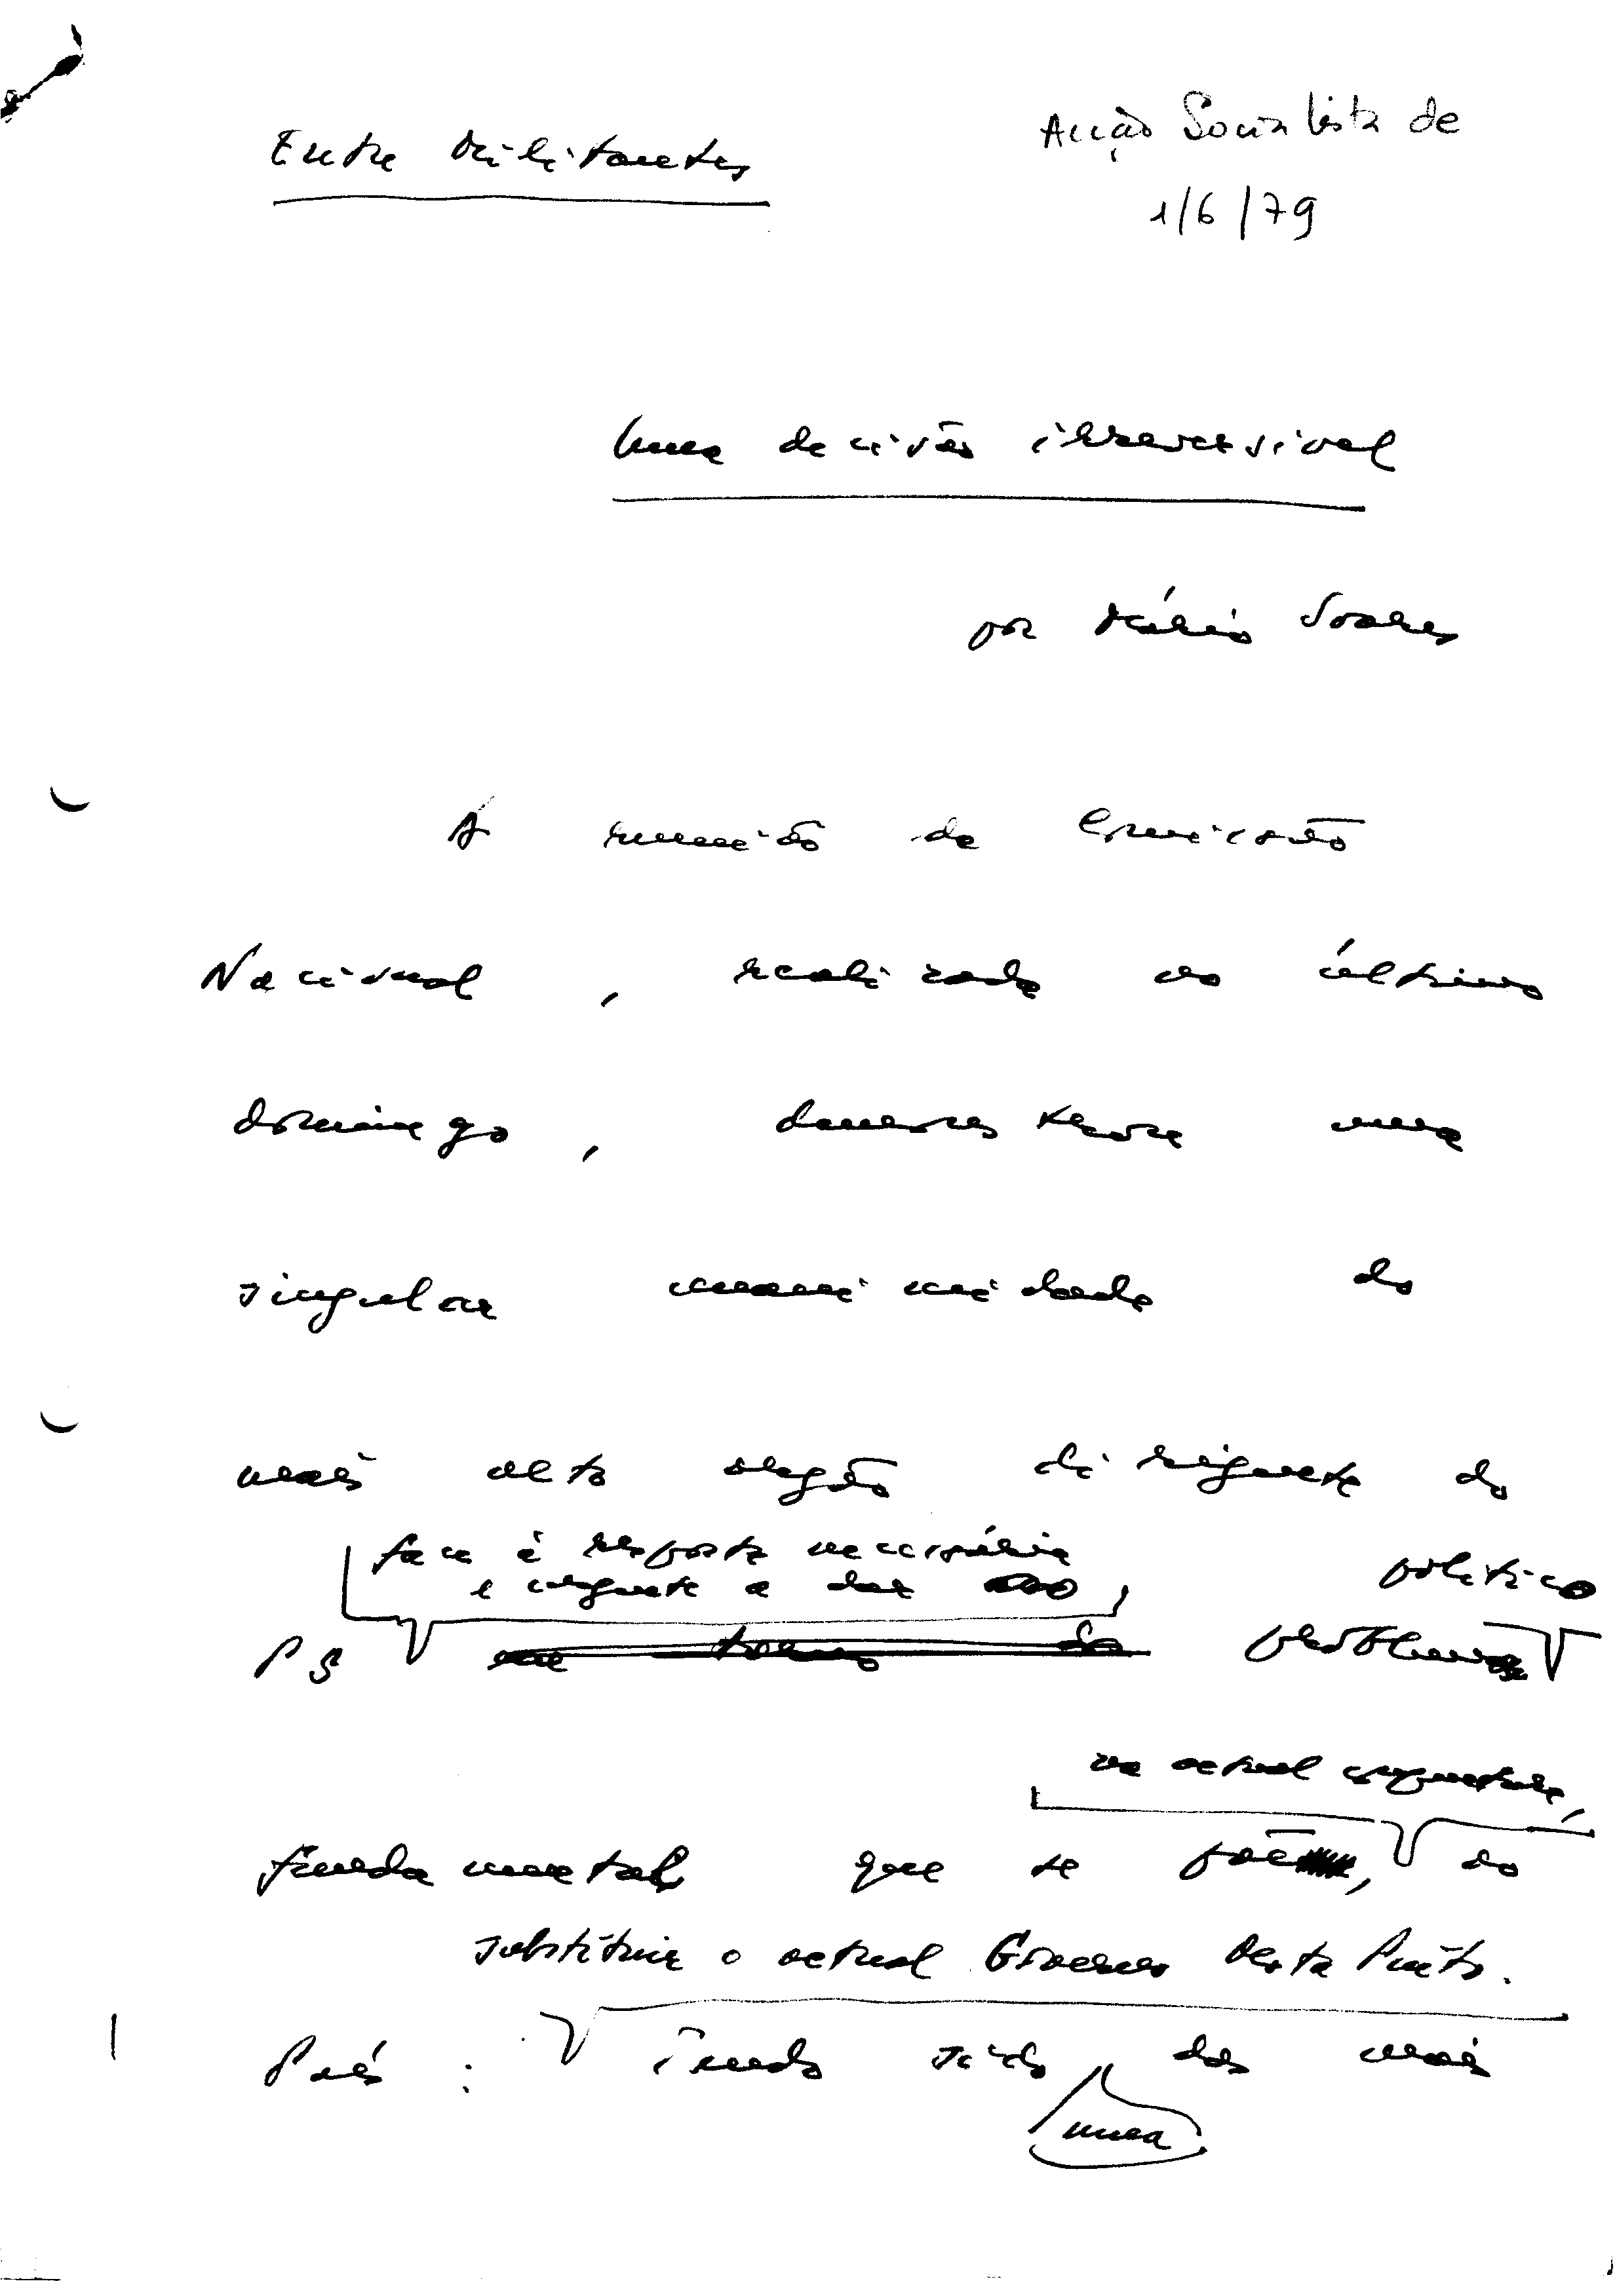 Entre Militantes
Acção Socialista de
1/6/79
Uma decisão irreversível
por Mário Soares
A reunião da Comissão
Nacional, realizada no último
domingo, demonstrou uma
singular unanimidade do
mais alto órgão dirigente do
face à resposta necessária
e urgente a dar ao
político
PS em torno do problema
na actual conjuntura,
fundamental que se põe, ao
substituir o actual Governo Mota Pinto.
País: Tendo sido das mais
uma